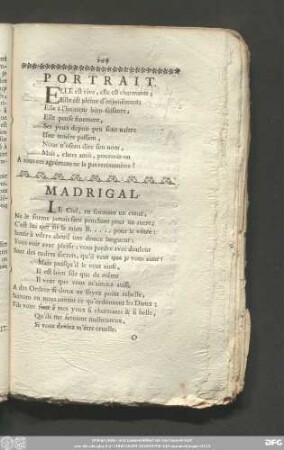 PORTRAIT.
ELLE est vive, elle est charmante;
Elle est pleine d'enjoüement;
Elle a l'humeur bien
Elle pense finement,
Ses yeux depuis peu font naître
Une tendre passion,
Nous n'osons dire son nom,
Mais, chers amis, pourroit-on
A tous ces agrémens ne la pas reconnoître?
MADRIGAL.
LE Ciel, en formant un cœur,
Ne le forme jamais sans penchant pour un autre;
C'est lui qui fit le mien B.... pour le vôtre:
Sentir à vôtre abord une douce langueur:
Vous voir avec plaisir, vous perdre avec douleur
Sont des ordres secrets, qu'il veut que je vous aime:
Mais puisqu'il le veut ainsi,
Il est bien sûr que de même
Il veut que vous m'aimiez aussi,
A des Ordres si doux ne soyez point rebelle,
Suivons en nous aimant ce qu'ordonnent les Dieux;
Ils vous firent à mes yeux si charmante & si belle,
Qu'ils me feroient malheureux,
Si vous deviez m'être cruelle.
O